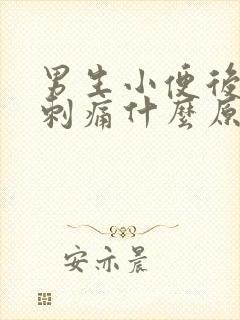 男生小便後
刺痛什麼原
安亦晨